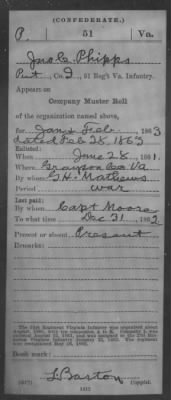 (CONFEDERATE.)
P. 51 Va.
Jno C. Phipps
Pvt., Co. I, 51 Reg't Va. Infantry.
Appears on
Company Muster Roll
of the organization named above,
for Jan & Feb., 1863
dated Feb 28, 1863
Enlisted:
When June 28, 1861.
Where Grayson Co. Va
By whom G.H. Mathews
Period war
Last paid:
By whom Capt Moore
To what time Dec 31, 1862
Present or absent Present
Remarks:
Book mark:
(642)
Copyist.